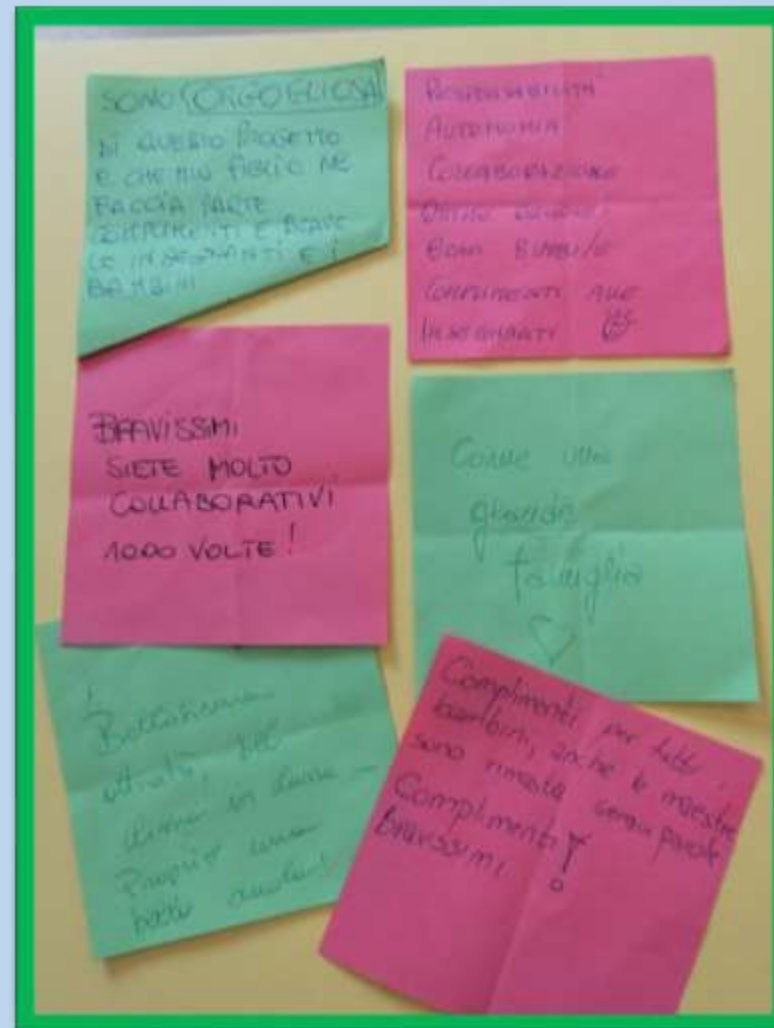 SONO ORGOGLIOSA
DI QUESTO PROGETTO
E CHE MIO FIGLIO NE
FACCIA PARTE
COMPLIMENTI E BRAVE
LE INSEGNANTI E I
BAMBINI
RESPONSABILITÀ
AUTONOMIA
COLLABORAZIONE
BRAVI BIMBI/E
COMPLIMENTI ALLE
INSEGNANTI
BRAVISSIMI
SIETE MOLTO
COLLABORATIVI
1000 VOLTE!
Come una
grande
famiglia
Bellissima
attività,
Proprio una
bella
Complimenti per tutti i
bambini, anche le maestre
sono rimasta senza parole
Complimenti!
Bravissimi